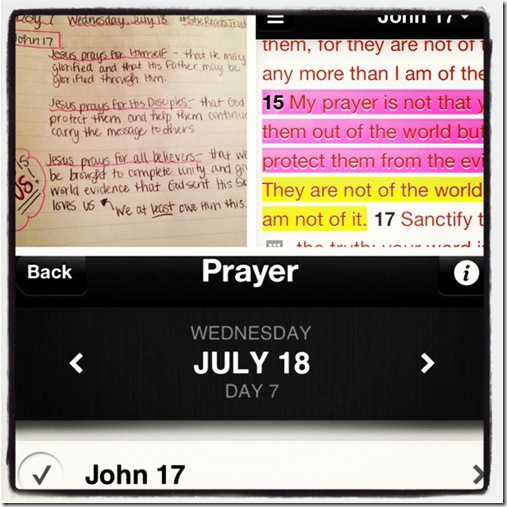 Day 7 Wednesday, July 18 #SheReadsTrut
John 17
Jesus prays for Himself - that He may
glorified and that His Father may be
glorified through Him.
Jesus prays for His Disciples - that God
protect them and help them continu
carry the message to others.
Jesus prays for all believers - that we
be brought to complete unity and gi
world evidence that God sent His S
loves us
We at least owe Him this.
US!
John 17
them, for they are not of t
any more than I am of the
15 My prayer is not that y
them out of the world bu
protect them from the evi
They are not of the world
am not of it. 17 Sanctify t
the truth; your word is
Back Prayer i
WEDNESDAY
JULY 18
DAY 7
John 17